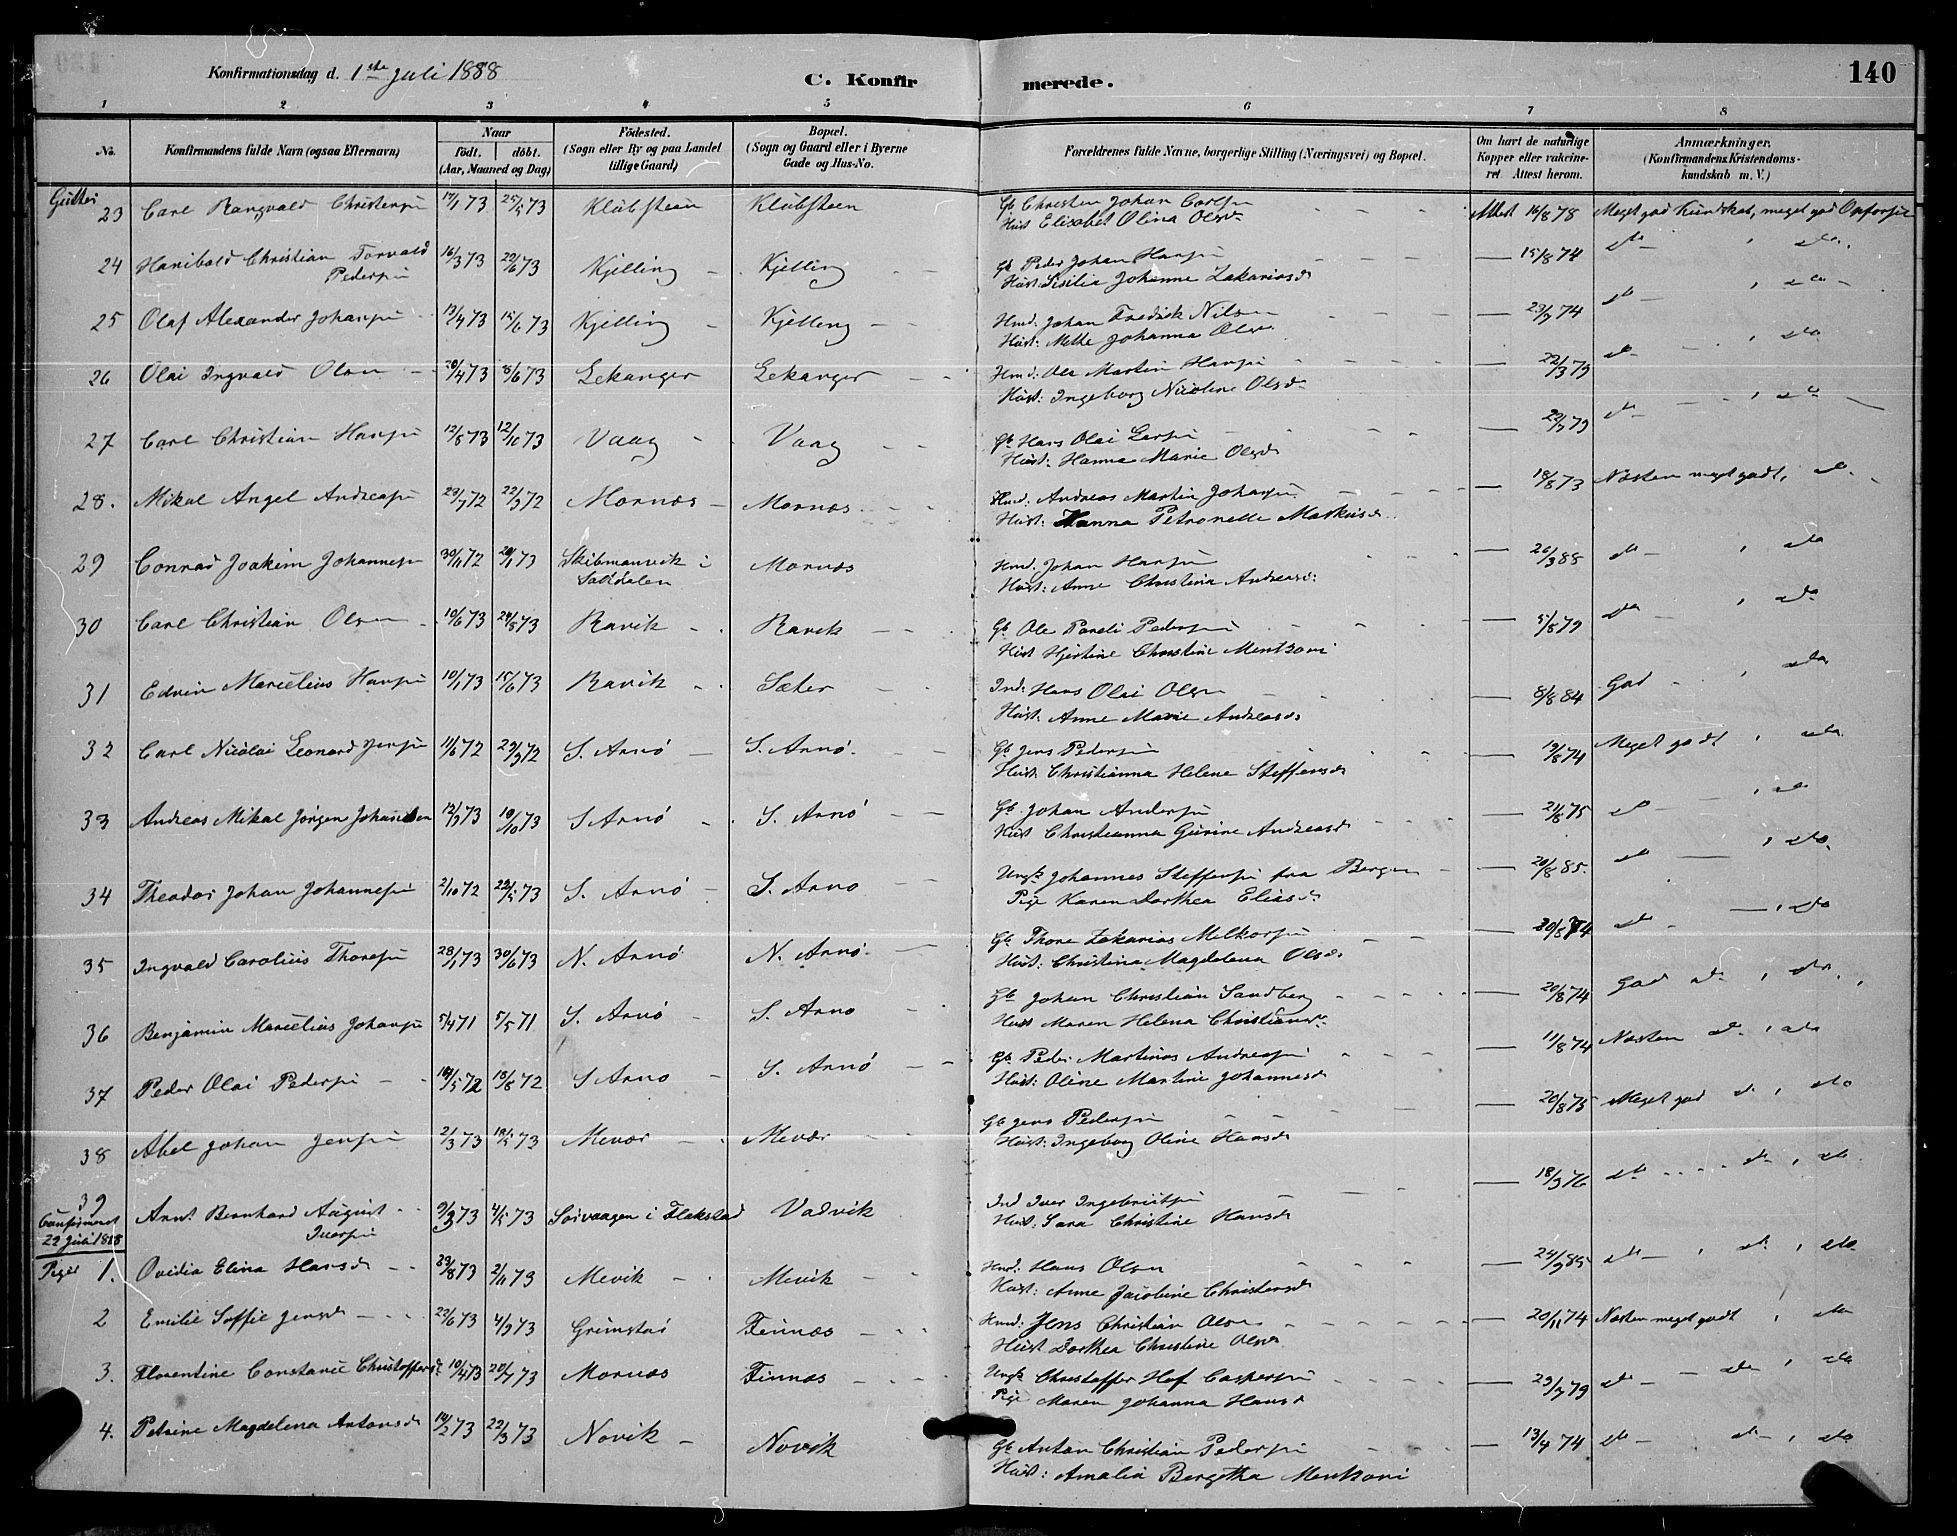 Konfirmationsdag d. 1ste Juli 1888
C. Konfirmerede.
140
1 2 3 4 5 6 7 8
No.
Konfirmandens fulde Navn (ogsaa Efternavn)
Naar
født. døbt.
(Aar, Maaned og Dag)
Fødested.
(Sogn eller By og paa Landet
tillige Gaard)
Bopæl.
(Sogn og Gaard eller i Byerne
Gade og Hus-No.
Forældrenes fulde Navne, borgerlige Stilling (Næringsvei) og Bopæl.
Om havt de naturlige
Kopper eller vakcine-
ret. Attest herom.
Anmærkninger.
(Konfirmandens Kristendoms-
kundskab m. V.)
Gutter
23 Carl Rangvald Christensen 17/1 73 25/5 73 Klubsteen Klubsteen Gb Christen Johan Carlsen Attest 16/8 78 Meget god Kundskab, meget god Opførsel
Hust Elisabet Olina Olsd.
24 Hanibald Christian Torvald 16/3 73 22/6 73 Kjelling Kjelling Gb Peder Johan Hansen 15/8 74 do , do.
Pedersen Hust: Sisilia Johanna Zakariasd
25 Olaf Alexander Johansen 13/4 73 15/6 73 Kjelling Kjelling Hmd. Johan Fredrik Nilsen 23/7 74 do , do
Hust: Methe Johanna Olsd
26 Olai Ingvald Olsen 20/4 73 8/6 73 Lekanger Lekanger Hmd: Ole Martin Hansen 22/3 79 do , do
Hust: Ingeborg Nicoline Olsd
27 Carl Christian Hansen 12/8 73 12/10 73 Vaag Vaag Gb Hans Olai Larsen 22/7 79 do , do
Hust: Hanna Marie Olsd
28. Mikal Angel Andreasen 23/7 72 22/9 72 Mornæs Mornæs Hmd: Andreas Martin Johansen 18/8 73 Næsten meget godt, do.
Hust: Hanna Petronelle Markusd.
29 Conrad Joakim Johannesen 30/11 72 20/1 73 Skibmannvik i Mornæs Hmd. Johan Hansen 26/3 88 do , do
Saltdalen Hust: Anne Christina Andreasd:
30 Carl Christian Olsen 10/6 73 24/8 73 Ravik Ravik Gb Ole Pareli Pedersen 5/8 79 do , do
Hust Hjertine Christine Mentzoni
31 Edvin Marcelius Hansen 10/1 73 15/6 73 Ravik Sæter Ind: Hans Olai Olsen 8/8 84 God , do
Hust: Anne Marie Andreasd
32 Carl Nicolai Leonard Jensen 11/6 72 29/9 72 S. Arnø S. Arnø. Gb Jens Pedersen 19/8 74 Meget godt , do
Hust: Christianna Helene Steffensd
33 Andreas Mikal Jørgen Johansen 12/7 73 19/10 73 S Arnø S. Arnø Gb. Johan Andersen 21/8 75 do , do
Hust Christianna Gurine Andreasd
34 Theodor Johan Johannesen 2/10 72 22/5 73 S. Arnø S. Arnø Ungk Johannes Steffensen fra Bergen 20/8 85. do , do.
Pige Karen Dorthea Eliasd
35 Ingvald Carolius Thoresen 28/1 73 30/6 73 N. Arnø N. Arnø. Gb Thore Zakarias Melkorsen 20/8 74 do , do
Hust: Christina Magdelena Olsd.
36 Benjamin Marcelius Johansen 5/4 71 5/5 71 S. Arnø S. Arnø Gb Johan Christian Sandberg 20/8 74 God do , do.
Hust Maren Helena Christiansd.
37 Peder Olai Pedersen 19/5 72 18/8 72 S Arnø S. Arnø Gb Peder Martinus Andreasen 11/8 74 Næsten do , do
Hust: Oline Martine Johannesd
38 Abel Johan Jensen 2/3 73 18/5 73 Mevær Mevær Gb Jens Pedersen 20/8 75 Meget god do , do
Hust: Ingeborg Oline Hansd
39 Arnt Bernhard August 9/3 73 4/5 73 Sørvaagen i Flakstad Vadvik Ind Iver Ingebrigtsen 18/9 76 do do , do
Confirmeret Iversen Hust: Sara Christine Hansd
22 Juli 1888
Piger 1. Ovidia Elina Hansd 29/8 73 2/11 73 Mevik Mevik Hmd: Hans Olsen 24/9 85 do , do , do.
Hust: Anne Jacobine Christensd
2 Emilie Soffie Jensd 22/6 73 4/9 73 Grimstad Finnæs Hmd: Jens Christian Olsen 20/11 74 Næsten meget godt , do
Hust Dorthea Christine Olsd
3. Florentine Constance Christoffersd. 10/4 73 20/7 73 Mornæs Finnæs Ungk Christoffer Hof Caspersen 23/7 79 do do , do
Pige Maren Johanna Hansd
4. Petrine Magdelena Antonsd 14/2 73 22/3 73 Novik Novik Gb Anton Christian Pedersen 13/4 74 do do , do
Hust: Amalia Bergitha Mentzoni